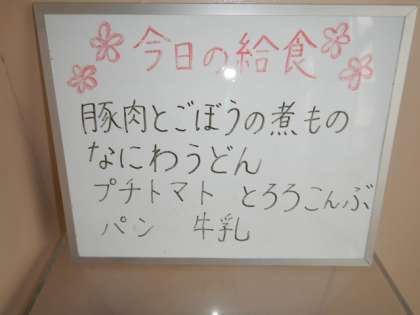 今日の給食
豚肉とごぼうの煮もの
なにわうどん
プチトマト とろろこんぶ
パン 牛乳